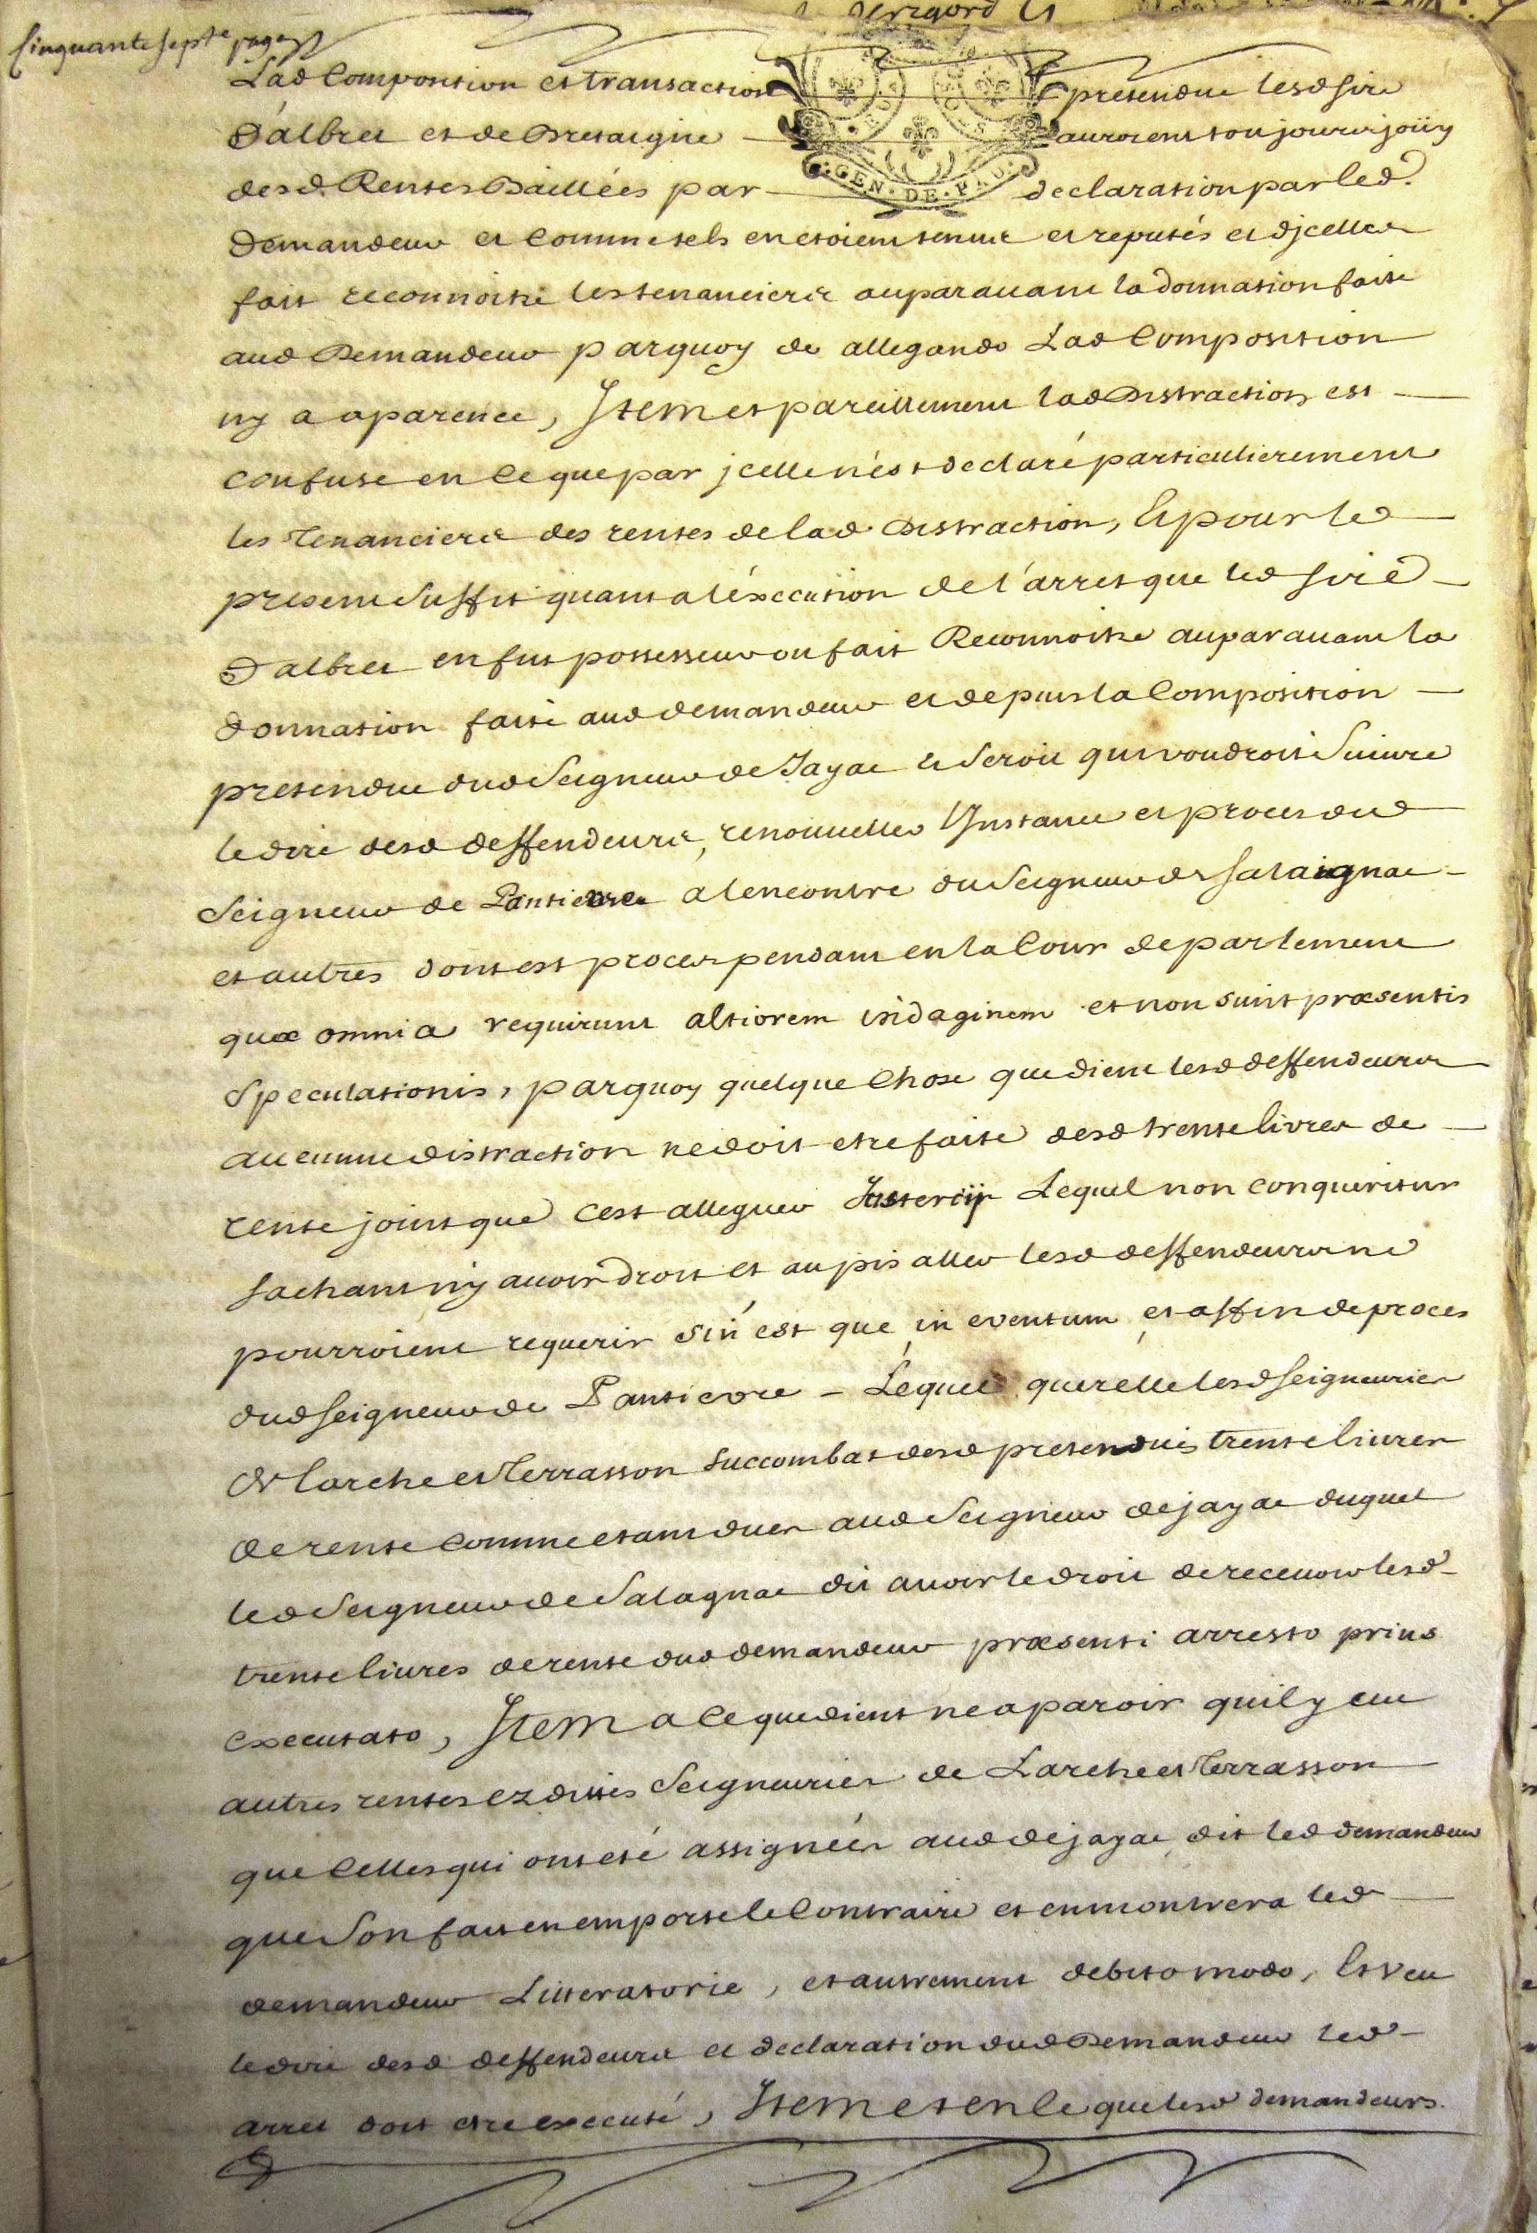 Cinquante septe pages
Lad Composition et transaction pretendue lesd sire
D'albret et de Bretaigne auroient toujours joüy
desd. Rentes Baillées par declaration par led.
Demandeur et Comme tels en etoient tenus et reputés et djcelles
fait reconnoitre les tenanciers auparauant la donnation faite
aud Demandeur parquoy de allegando Lad Composition
ny a aparence, Jtem et pareillement lad Distraction est
confuse en Ce que par jcelle n'est declaré particulierement
les tenanciers des rentes de lad Distraction, Et pour le
present Suffit quant a l'éxecution de l'arrest que led sire
D'albret en fut possesseur ou fait Reconnoitre auparauant la
donnation faite aud demandeur et depuis la Composition
pretendue dud Seigneur de Jayac et Seroit qui voudroit Suiure
le dire desd deffendeurs, renouueller l'Jnstance et proces dud
Seigneur de Pantievre a lencontre du Seigneur de Salaignac
et autres dont est proces pendant en la Cour de parlement
quæ omnia requirunt altiorem indaginem et non sunt præsentis
Speculationis, parquoy quelque Chose que dient lesd deffendeurs
aucunne distraction ne doit etre faite desd trente livres de
rente joint que C'est alleguer Lequel non conqueritur
sachant n'y auoir droit et au pis aller lesd deffendeurs ne
pourroient requerir si n'est que in eventum et affin de proces
dud seigneur de Pantievre - Lequel querelle lesd seigneuries
de larche et Terrasson succombat desd pretenduës trente liures
de rente comme etant dues aud Seigneur de jayac duquel
led Seigneur de Salagnac dit auoir le droit de receuoir lesd
trente liures de rente dud demandeur præsenti arresto prius
executato, Jtem a Ce que dient ne aparoir quil y eut
autres rentes ez dittes Seigneuries de Larche et Terrasson
que Celles qui ont eté assignées aud de jayac dit led demandeur
que Son fait en emporte le Contraire et en montrera led
demandeur Litteratorie, et autrement debito modo, Et veu
le dire desd deffendeurs et declaration dud Demandeur led
arret doit etre executé, Jtem et en Ce que lesd demandeurs.